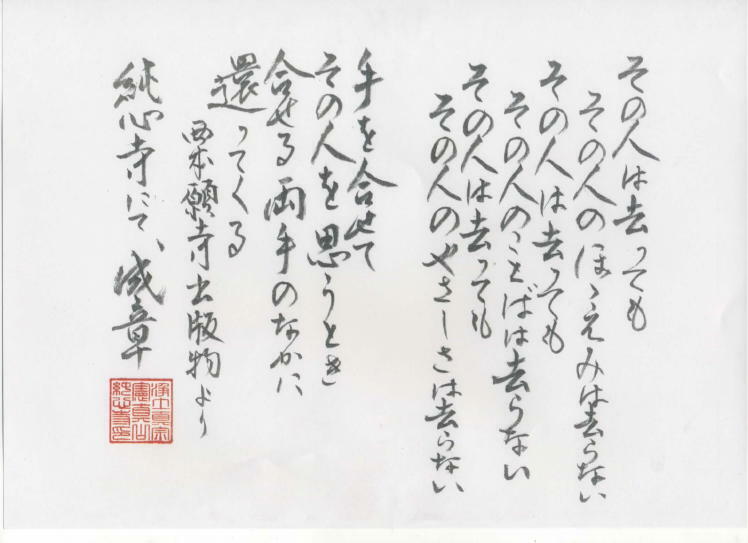 その人は去っても
その人のほゝえみは去らない
その人は去っても
その人のことばは去らない
その人は去っても
その人のやさしさは去らない
手を合せて
その人を思うとき
合せる両手のなかに
還ってくる
西本願寺出版物より
純心寺にて、成章
浄土真宗
憲真山
純心寺印